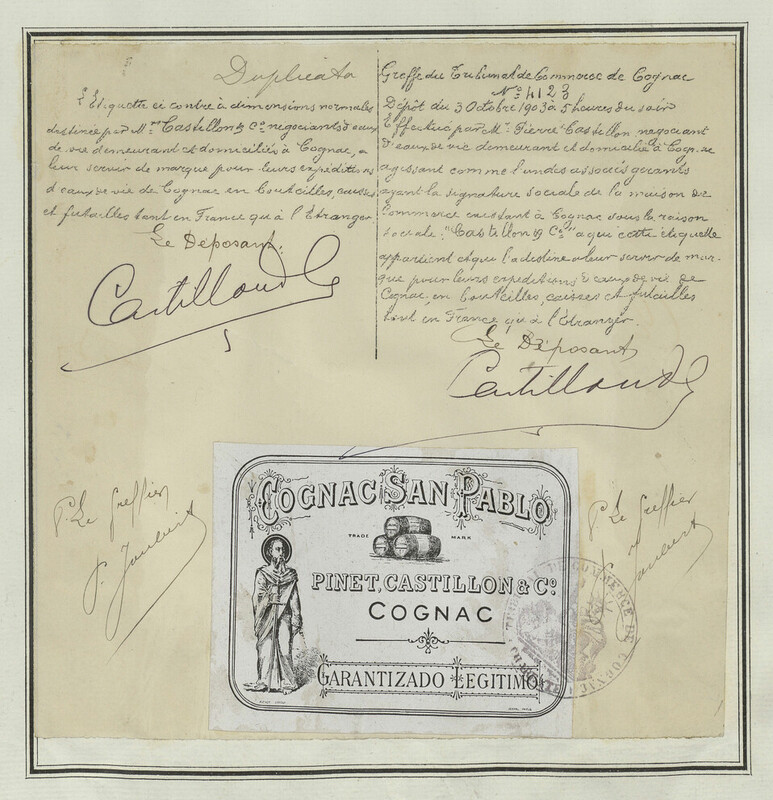 Duplicata
L'Etiquette ci contre à dimensions normales
destinée par Mrs Castillon & Co negociants d'eaux
de vie demeurant et domiciliés à Cognac, a
leur servir de marque pour leurs expéditions
d'eaux de vie de Cognac en bouteilles, caisses
et futailles tant en France qu'à l'Etranger
Le Déposant.
Castillon & Co
Greffe du Tribunal de Commerce de Cognac
No 4123
Dépôt du 3 Octobre 1903 à 5 heures du soir
Effectué par Mr Pierre Castillon negociant
d'eaux de vie demeurant et domicilié à Cognac
agissant comme l'un des associés gérants
ayant la signature sociale de la maison de
Commerce existant à Cognac sous la raison
sociale "Castillon & Co" a qui cette étiquette
appartient et qui l'a destine a leur servir de mar-
que pour leurs expéditions d'eaux de vie de
Cognac, en bouteilles, caisses et futailles
tant en France qu'à l'Etranger.
Le Déposant
Castillon & Co
P. Le Greffier
P. Joubert
P. Le Greffier
Joubert
COGNAC SAN PABLO
TRADE MARK
PINET, CASTILLON & Co.
COGNAC
GARANTIZADO LEGITIMO
TRIBUNAL DE COMMERCE DE COGNAC